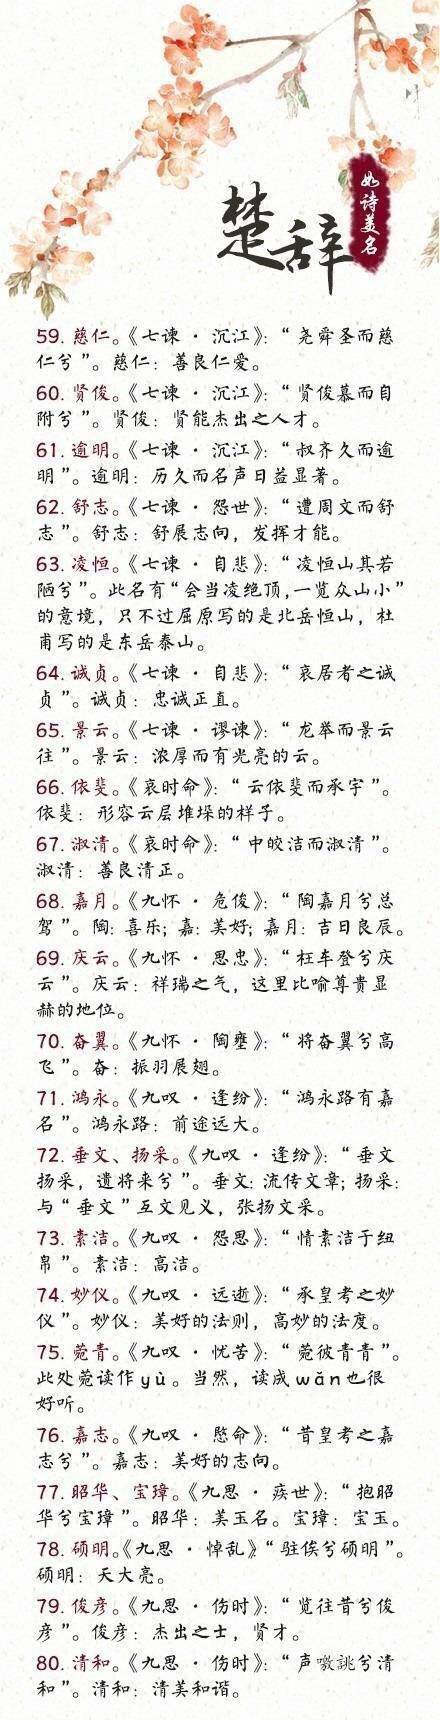 楚辞
如诗美名
59. 慈仁。《七谏·沉江》：“尧舜圣而慈
仁兮”。慈仁：善良仁爱。
60. 贤俊。《七谏·沉江》：“贤俊慕而自
附兮”。贤俊：贤能杰出之人才。
61. 逾明。《七谏·沉江》：“叔齐久而逾
明”。逾明：历久而名声日益显著。
62. 舒志。《七谏·怨世》：“遭周文而舒
志”。舒志：舒展志向，发挥才能。
63. 凌恒。《七谏·自悲》：“凌恒山其若
陋兮”。此名有“会当凌绝顶，一览众山小”
的意境，只不过屈原写的是北岳恒山，杜
甫写的是东岳泰山。
64. 诚贞。《七谏·自悲》：“哀居者之诚
贞”。诚贞：忠诚正直。
65. 景云。《七谏·谬谏》：“龙举而景云
往”。景云：浓厚而有光亮的云。
66. 依斐。《哀时命》：“云依斐而承宇”。
依斐：形容云层堆垛的样子。
67. 淑清。《哀时命》：“中皎洁而淑清”。
淑清：善良清正。
68. 嘉月。《九怀·危俊》：“陶嘉月兮总
驾”。陶：喜乐；嘉：美好；嘉月：吉日良辰。
69. 庆云。《九怀·思忠》：“枉车登兮庆
云”。庆云：祥瑞之气，这里比喻尊贵显
赫的地位。
70. 奋翼。《九怀·陶壅》：“将奋翼兮高
飞”。奋：振羽展翅。
71. 鸿永。《九叹·逢纷》：“鸿永路有嘉
名”。鸿永路：前途远大。
72. 垂文、扬采。《九叹·逢纷》：“垂文
扬采，遗将来兮”。垂文：流传文章；扬采：
与“垂文”互文见义，张扬文采。
73. 素洁。《九叹·怨思》：“情素洁于纽
帛”。素洁：高洁。
74. 妙仪。《九叹·远逝》：“承皇考之妙
仪”。妙仪：美好的法则，高妙的法度。
75. 菀青。《九叹·忧苦》：“菀彼青青”。
此处菀读作yù。当然，读成wǎn也很
好听。
76. 嘉志。《九叹·愍命》：“昔皇考之嘉
志兮”。嘉志：美好的志向。
77. 昭华、宝璋。《九思·疾世》：“抱昭
华兮宝璋”。昭华：美玉名。宝璋：宝玉。
78. 硕明。《九思·悼乱》“驻俟兮硕明”。
硕明：天大亮。
79. 俊彦。《九思·伤时》：“览往昔兮俊
彦”。俊彦：杰出之士，贤才。
80. 清和。《九思·伤时》：“声噭誂兮清
和”。清和：清美和谐。